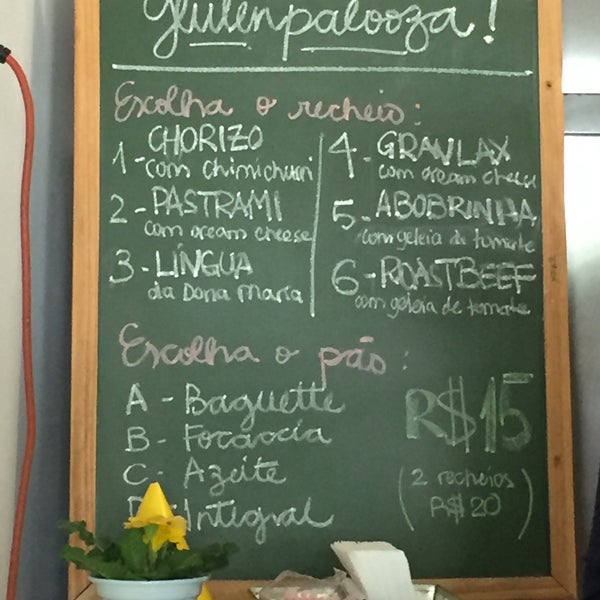 Glutenpalooza!
Escolha o recheio:
1- CHORIZO
com chimichurri
2- PASTRAMI
com cream cheese
3- LÍNGUA
da Dona Maria
4- GRAVLAX
com cream cheese
5- ABOBRINHA
com geleia de tomate
6- ROASTBEEF
com geleia de tomate
Escolha o pão:
A - Baguette
B - Focaccia
C - Azeite
D - Integral
R$15
(2 recheios
R$20)